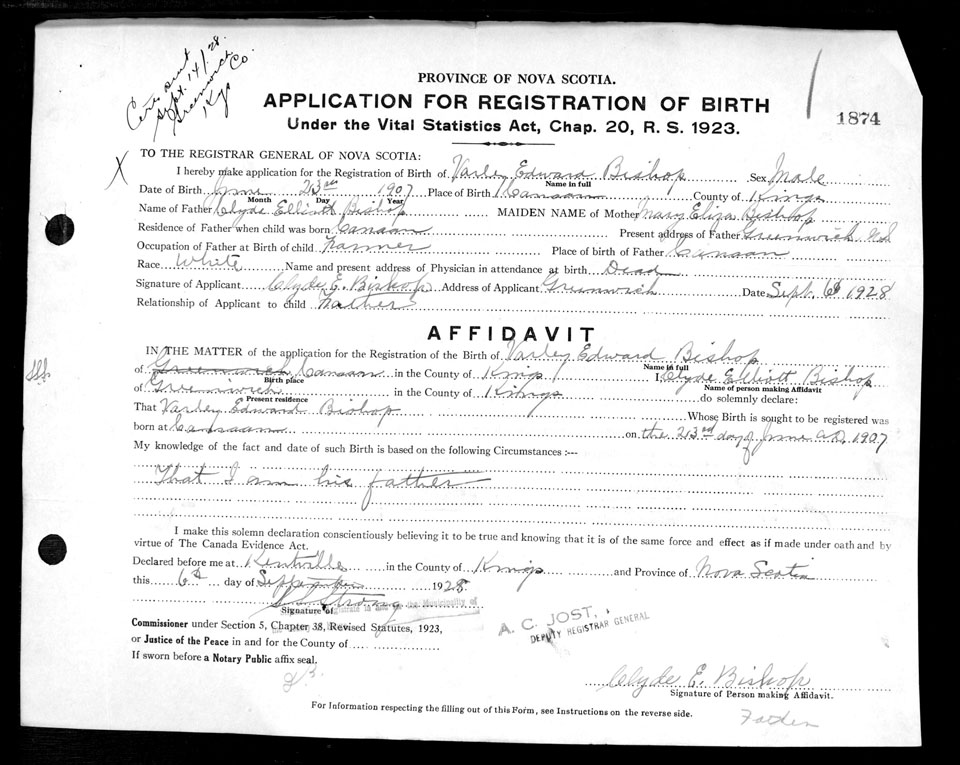 Cert sent
Sept. 14/28.
Greenwich
Kgs Co.
PROVINCE OF NOVA SCOTIA.
APPLICATION FOR REGISTRATION OF BIRTH
Under the Vital Statistics Act, Chap. 20, R. S. 1923.
1874
X
TO THE REGISTRAR GENERAL OF NOVA SCOTIA:
I hereby make application for the Registration of Birth of Varley Edward Bishop Sex Male
Name in full
Date of Birth June 23rd 1907 Place of Birth Canaan County of Kings
Month Day Year
Name of Father Clyde Elliott Bishop MAIDEN NAME of Mother Mary Eliza Bishop
Residence of Father when child was born Canaan Present address of Father Greenwich N.S
Occupation of Father at Birth of child Farmer Place of birth of Father Canaan
Race White Name and present address of Physician in attendance at birth Dead
Signature of Applicant Clyde E. Bishop Address of Applicant Greenwich Date Sept. 6 1928
Relationship of Applicant to child Father
AFFIDAVIT
IN THE MATTER of the application for the Registration of the Birth of Varley Edward Bishop
Name in full
of Greenwich Canaan in the County of Kings I Clyde Elliott Bishop
Birth place Name of person making Affidavit
of Greenwich in the County of Kings do solemnly declare:
Present residence
That Varley Edward Bishop Whose Birth is sought to be registered was
born at Canaan on the 23rd day of June A.D. 1907
My knowledge of the fact and date of such Birth is based on the following Circumstances :--
That I am his father
I make this solemn declaration conscientiously believing it to be true and knowing that it is of the same force and effect as if made under oath and by
virtue of The Canada Evidence Act.
Declared before me at Kentville in the County of Kings and Province of Nova Scotia
this 6th day of September 1928
Strong
Signature of
Commissioner under Section 5, Chapter 38, Revised Statutes, 1923,
or Justice of the Peace in and for the County of
If sworn before a Notary Public affix seal.
A. C. JOST,
DEPUTY REGISTRAR GENERAL
Clyde E. Bishop
Signature of Person making Affidavit.
Father
For Information respecting the filling out of this Form, see Instructions on the reverse side.